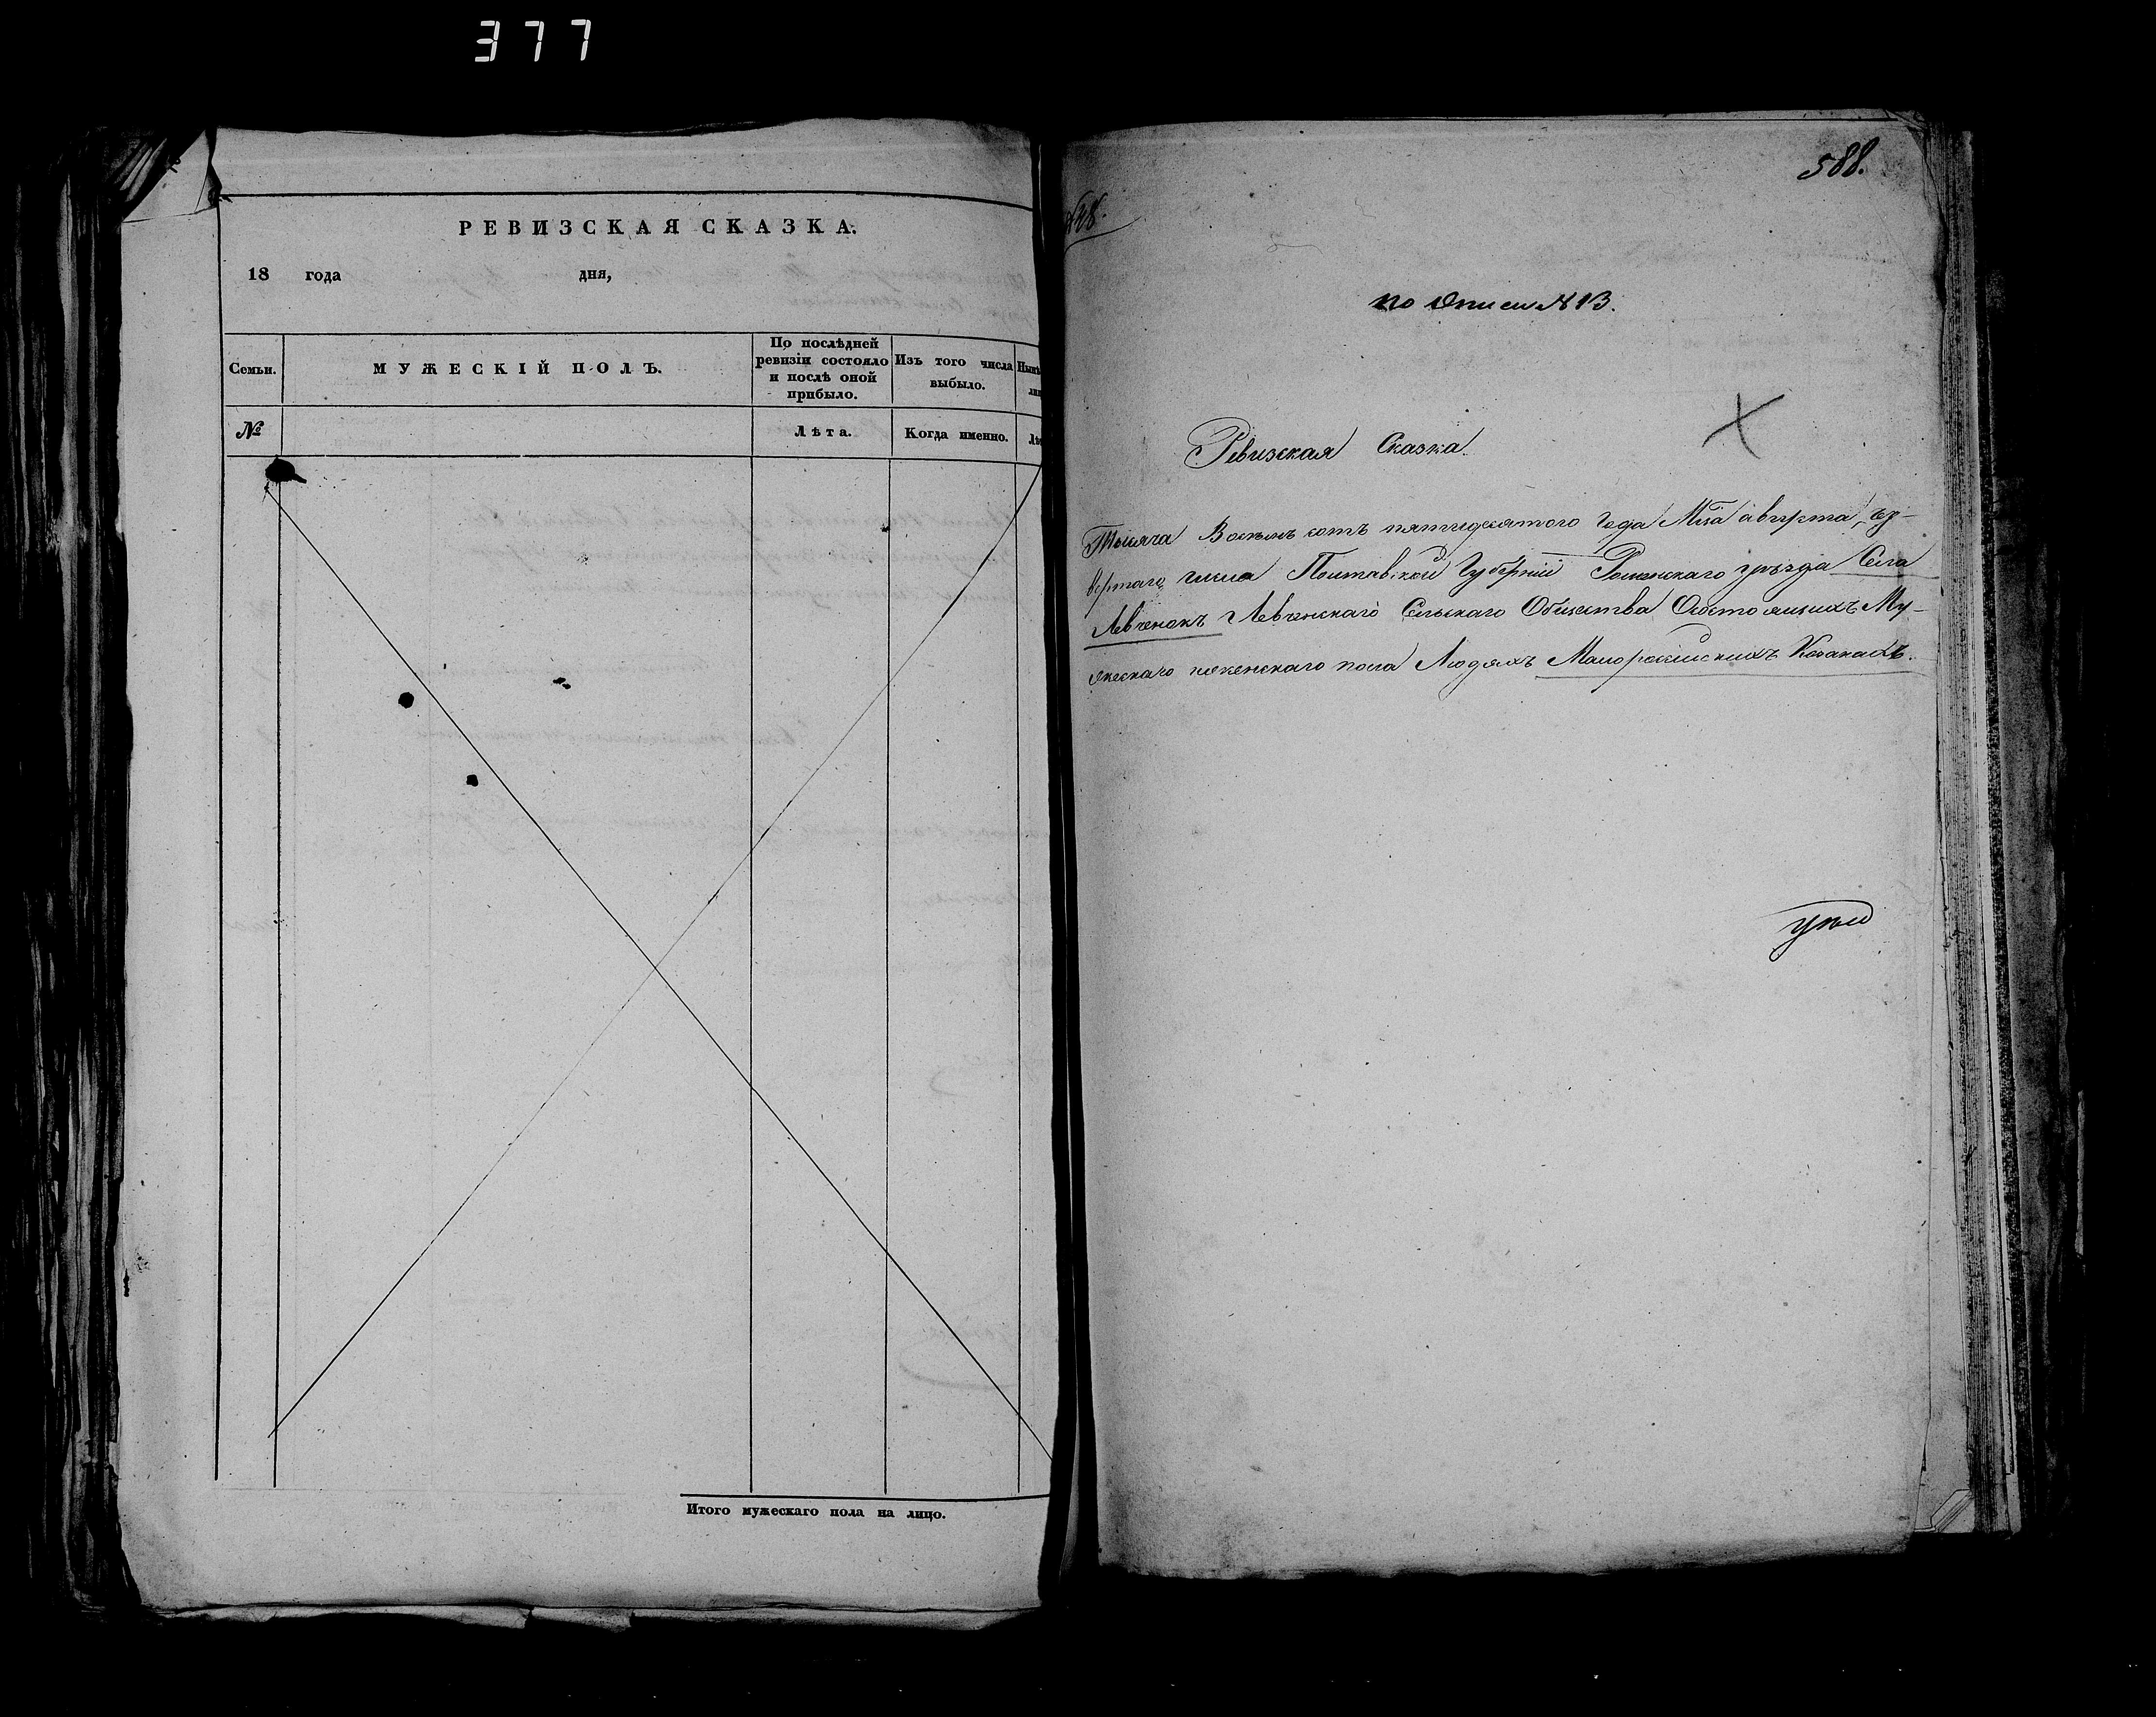 377
РЕВИЗСКАЯ СКАЗКА.
18 года дня,
Семьи.
МУЖЕСКІЙ ПОЛЪ.
По послѣдней
ревизіи состояло
и послѣ оной
прибыло.
Изъ того числа
выбыло.
№
Лѣта.
Когда именно.
Итого мужескаго пола на лицо.
588.
по Описи №13.
Ревизская Сказка.
Тысяча Восемь сотъ пятидесятого Года Мца августа, че-
вертаго числа Полтавской Губерніи Роменскаго уѣзда Села
Левченокъ Левченскаго Сельскаго Общества Состоящихъ Му-
жескаго иженскаго пола Людяхъ Малороссийскихъ Козакахъ.